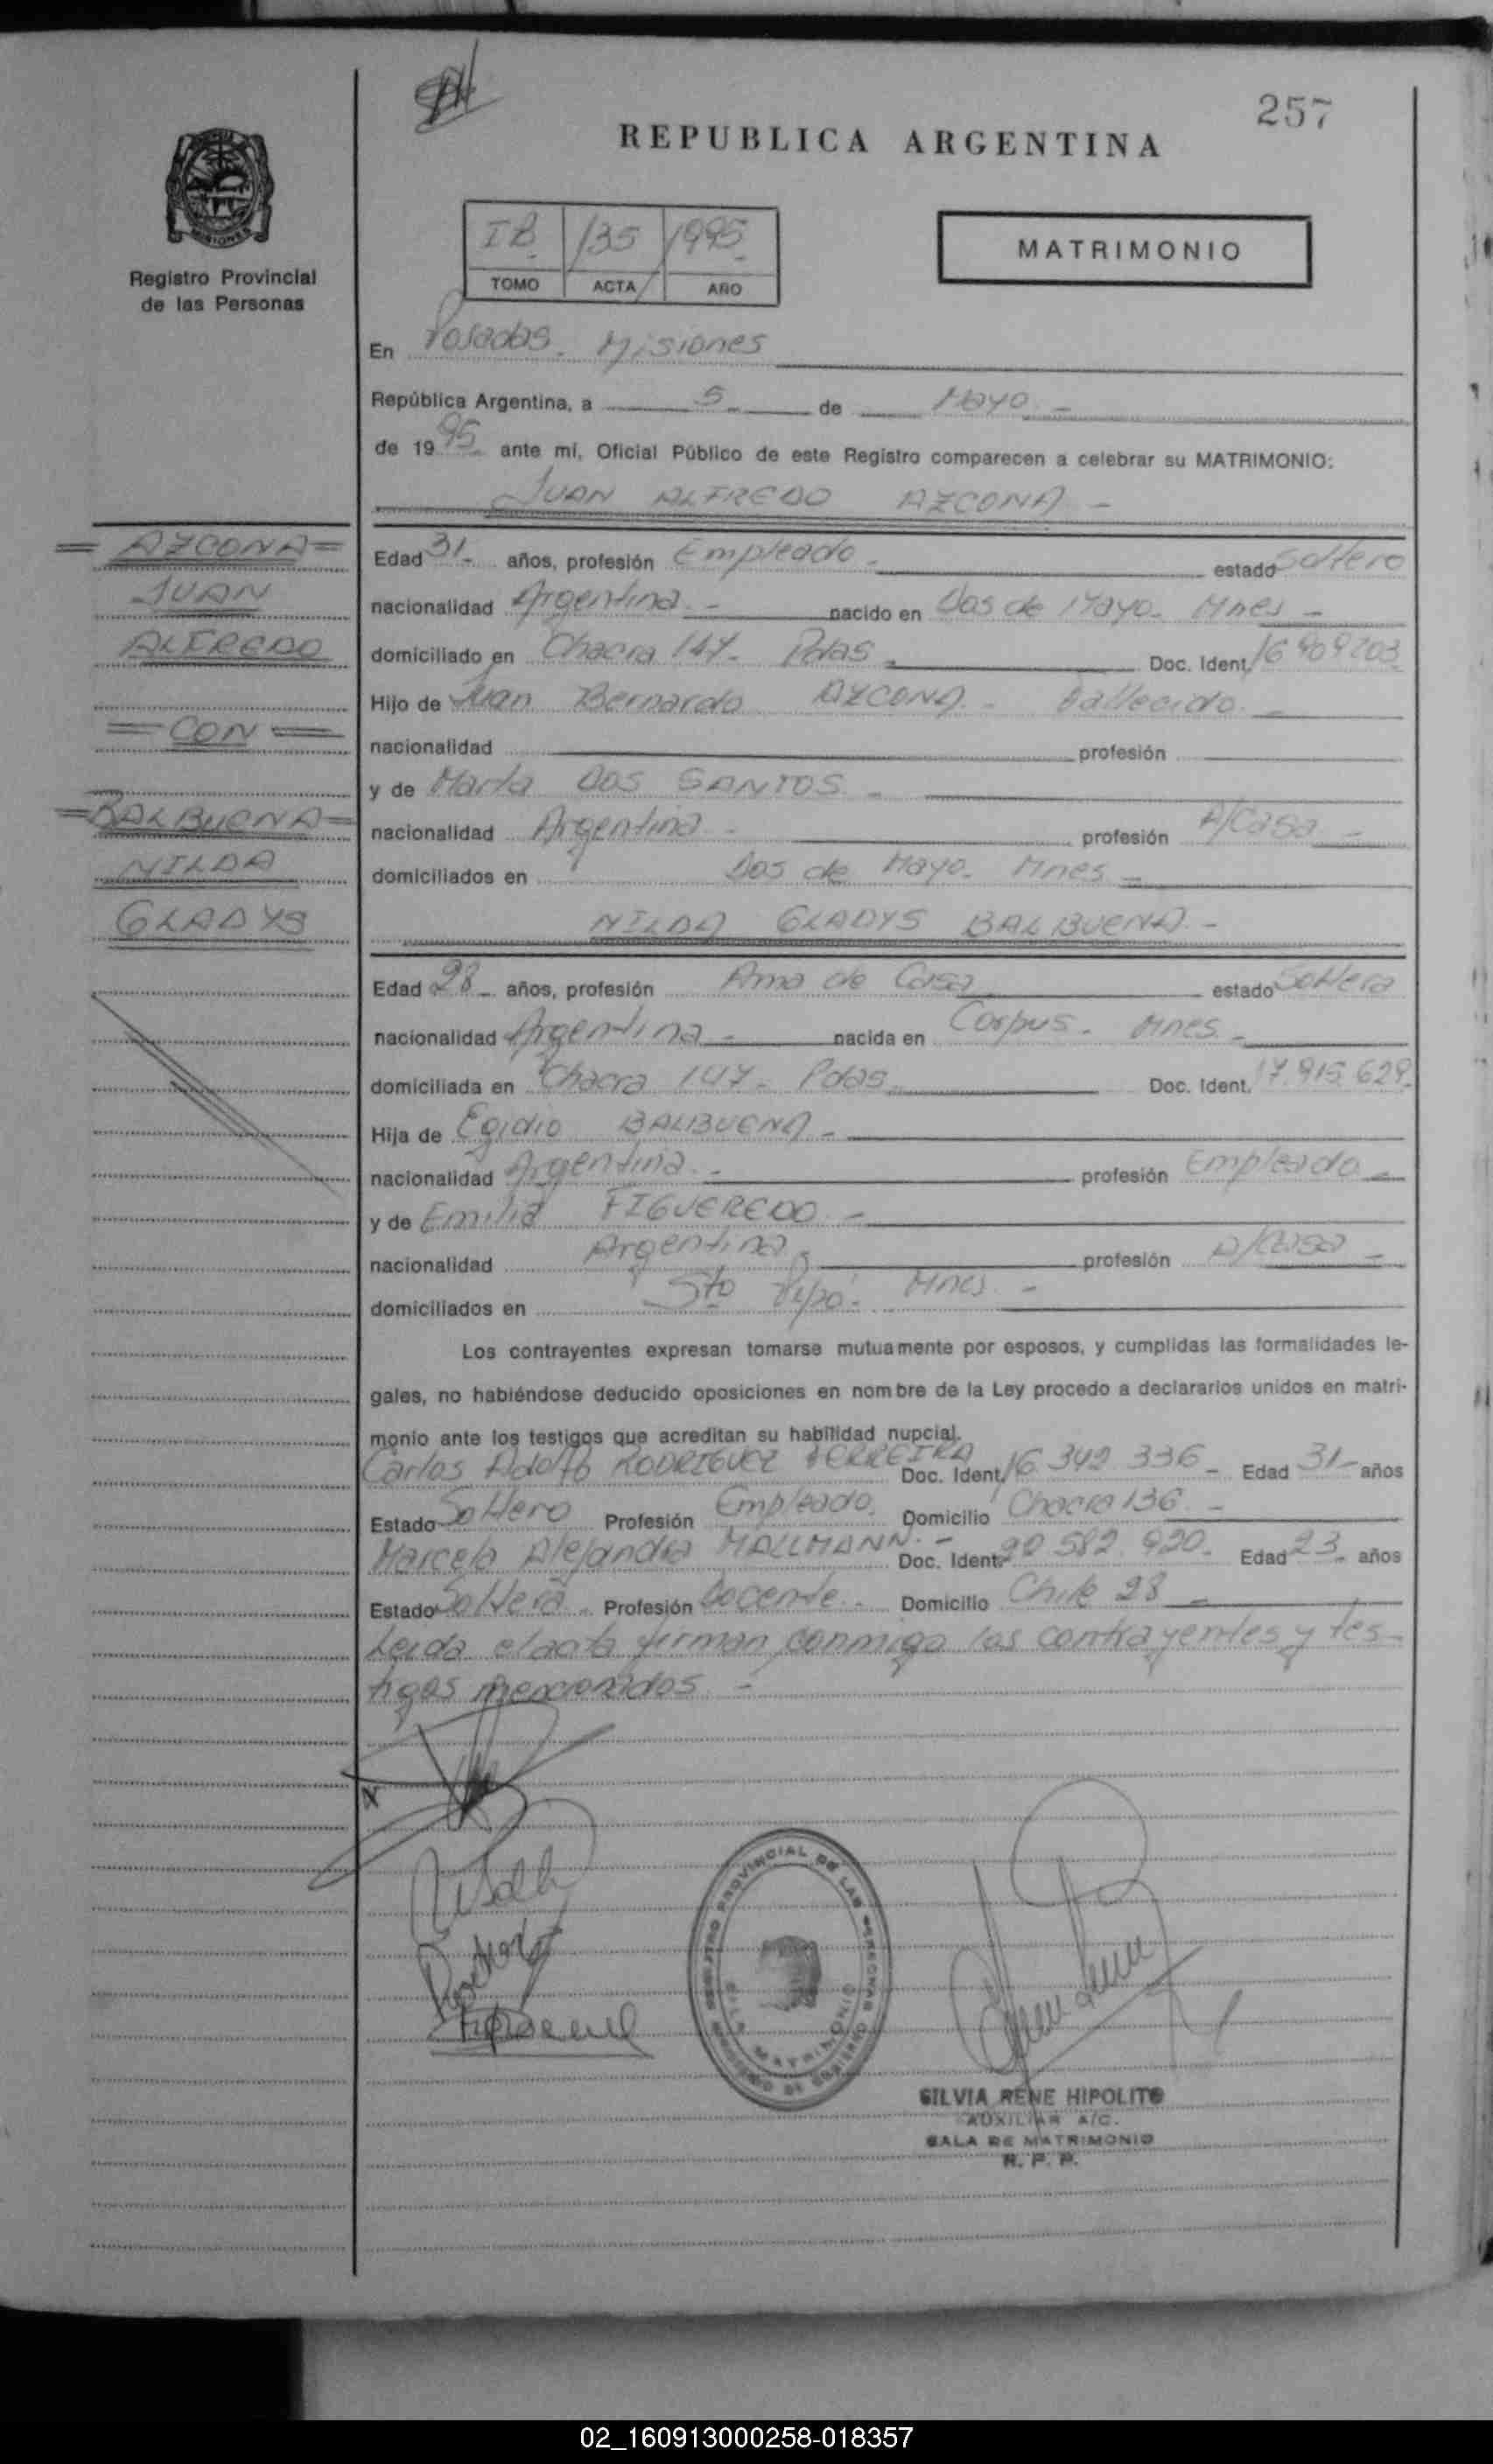 257
REPUBLICA ARGENTINA
MISIONES
Registro Provincial
de las Personas
IB 135 1995
TOMO ACTA AÑO
MATRIMONIO
En Posadas. Misiones
República Argentina, a 5 de Mayo
de 1995 ante mí, Oficial Público de este Registro comparecen a celebrar su MATRIMONIO:
JUAN ALFREDO AZCONA
= AZCONA =
JUAN
ALFREDO
= CON =
= BALBUENA =
NILDA
GLADYS
Edad 31 años, profesión Empleado estado Soltero
nacionalidad Argentina nacido en Dos de Mayo. Mnes
domiciliado en Chacra 147. Pdas Doc. Ident. 16 909 203
Hijo de Juan Bernardo AZCONA. Fallecido.
nacionalidad profesión
y de Marta DOS SANTOS
nacionalidad Argentina profesión A/Casa
domiciliados en Dos de Mayo. Mnes
NILDA GLADYS BALBUENA
Edad 28 años, profesión Ama de Casa estado Soltera
nacionalidad Argentina nacida en Corpus. Mnes.
domiciliada en Chacra 147. Pdas Doc. Ident. 17.915.629
Hija de Egidio BALBUENA
nacionalidad Argentina profesión Empleado
y de Emilia FIGUEREDO
nacionalidad Argentina profesión A/Casa
domiciliados en Sto Pipó. Mnes.
Los contrayentes expresan tomarse mutuamente por esposos, y cumplidas las formalidades le-
gales, no habiéndose deducido oposiciones en nombre de la Ley procedo a declararlos unidos en matri-
monio ante los testigos que acreditan su habilidad nupcial.
Carlos Adolfo RODRIGUEZ FERREIRA Doc. Ident. 16 342 336 Edad 31 años
Estado Soltero Profesión Empleado. Domicilio Chacra 136
Marcela Alejandra MALLMANN. Doc. Ident. 20 582 920. Edad 23 años
Estado Soltera Profesión Docente. Domicilio Chile 28
Leida el acta firman conmigo los contrayentes y tes-
tigos mencionados
REGISTRO PROVINCIAL DE LAS PERSONAS
MINISTERIO DE GOBIERNO
SALA MATRIMONIO
SILVIA RENE HIPOLITO
AUXILIAR A/C.
SALA DE MATRIMONIO
R. P. P.
02_160913000258-018357